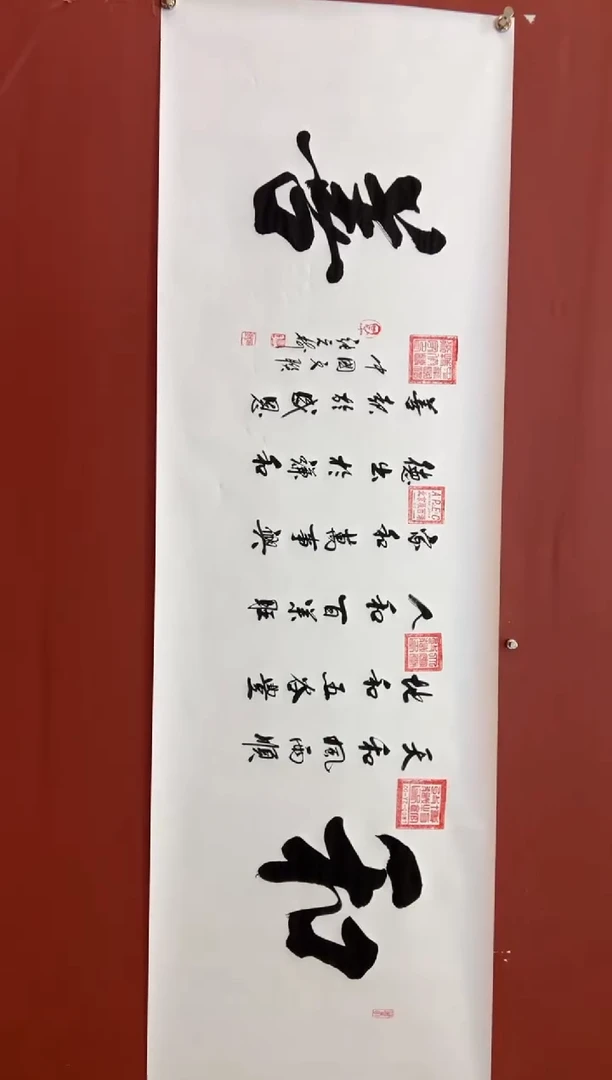 和
天和風雨順
地和五谷豐
人和百業旺
家和萬事興
德出於謙和
善於感恩
中國文聯
善
APEC